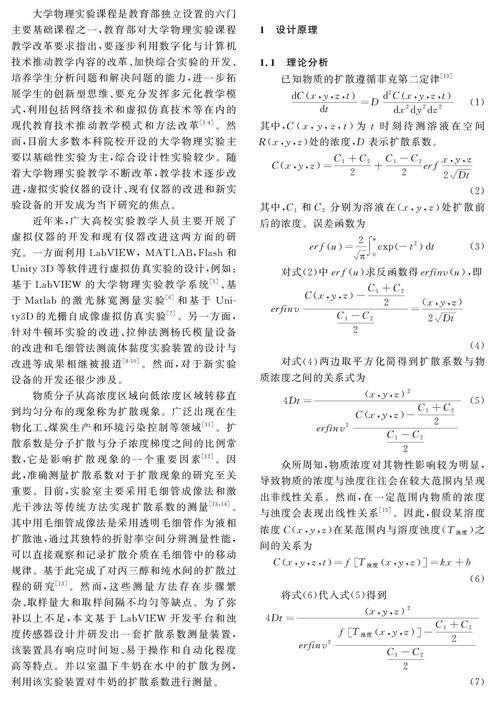 大学物理实验课程是教育部独立设置的六门
主要基础课程之一,教育部对大学物理实验课程
教学改革要求指出,要逐步利用数字化与计算机
技术推动教学内容的改革、加快综合实验的开发、
培养学生分析问题和解决问题的能力,进一步拓
展学生的创新型思维、要充分发挥多元化教学模
式,利用包括网络技术和虚拟仿真技术等在内的
现代教育技术推动教学模式和方法改革[1-4]。然
而,目前大多数本科院校开设的大学物理实验主
要以基础性实验为主,综合设计性实验较少。随
着大学物理实验教学不断改革,教学技术逐步改
进,虚拟实验仪器的设计、现有仪器的改进和新实
验设备的开发成为当下研究的焦点。
近年来,广大高校实验教学人员主要开展了
虚拟仪器的开发和现有仪器改进这两方面的研
究。一方面利用 LabVIEW, MATLAB,Flash 和
Unity 3D 等软件进行虚拟仿真实验的设计,例如:
基于 LabVIEW 的大学物理实验教学系统[5]、基
于 Matlab 的激光脉宽测量实验[6]和基于 Uni-
ty3D 的光栅自成像虚拟仿真实验[7]。另一方面,
针对牛顿环实验的改进、拉伸法测杨氏模量设备
的改进和毛细管法测流体黏度实验装置的设计与
改进等成果相继被报道[8-10]。然而,对于新实验
设备的开发还很少涉及。
物质分子从高浓度区域向低浓度区域转移直
到均匀分布的现象称为扩散现象。广泛出现在生
物化工、煤炭生产和环境污染控制等领域[11]。扩
散系数是分子扩散与分子浓度梯度之间的比例常
数,它是影响扩散现象的一个重要因素[12]。因
此,准确测量扩散系数对于扩散现象的研究至关
重要。目前,实验室主要采用毛细管成像法和激
光干涉法等传统方法实现扩散系数的测量[13,14]。
其中用毛细管成像法是采用透明毛细管作为液相
扩散池,通过其独特的折射率空间分辨测量性能,
可以直接观察和记录扩散介质在毛细管中的移动
规律。基于此完成了对丙三醇和纯水间的扩散过
程的研究[13]。然而,这些测量方法存在步骤繁
杂、取样量大和取样间隔不均匀等缺点。为了弥
补以上不足,本文基于 LabVIEW 开发平台和浊
度传感器设计并研发出一套扩散系数测量装置,
该装置具有响应时间短、易于操作和自动化程度
高等特点。并以室温下牛奶在水中的扩散为例,
利用该实验装置对牛奶的扩散系数进行测量。
1 设计原理
1.1 理论分析
已知物质的扩散遵循菲克第二定律[13]
dC(x,y,z,t)/dt = D d²C(x,y,z,t)/dx²dy²dz² (1)
其中,C(x,y,z,t)为 t 时刻待测溶液在空间
R(x,y,z)处的浓度,D 表示扩散系数。
C(x,y,z) = (C₁+C₂)/2 + (C₁−C₂)/2 erf (x,y,z)/(2√Dt)
(2)
其中,C₁ 和 C₂ 分别为溶液在(x,y,z)处扩散前
后的浓度。误差函数为
erf(u) = 2/√π ∫₀ᵘ exp(−t²)dt (3)
对式(2)中 erf(u)求反函数得 erfinv(u),即
erfinv (C(x,y,z)−(C₁+C₂)/2)/((C₁−C₂)/2) = (x,y,z)/(2√Dt)
(4)
对式(4)两边取平方化简得到扩散系数与物
质浓度之间的关系式为
4Dt = (x,y,z)²/(erfinv² (C(x,y,z)−(C₁+C₂)/2)/((C₁−C₂)/2)) (5)
众所周知,物质浓度对其物性影响较为明显,
导致物质的浓度与浊度往往会在较大范围内呈现
出非线性关系。然而,在一定范围内物质的浓度
与浊度会表现出线性关系[15]。因此,假设某溶度
浓度 C(x,y,z)在某范围内与溶度浊度(T浊度)之
间的关系为
C(x,y,z,t)=f[T浊度(x,y,z)]=kx+b
(6)
将式(6)代入式(5)得到
4Dt = (x,y,z)²/(erfinv² (f[T浊度(x,y,z)]−(C₁+C₂)/2)/((C₁−C₂)/2))
(7)